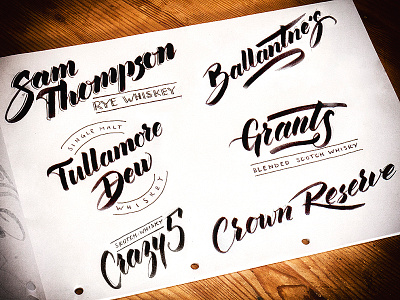 Sam
Thompson
RYE WHISKEY
Ballantne's
SINGLE MALT
Tullamore
Dew
WHISKEY
Grants
BLENDED SCOTCH WHISKY
SKOTCH WHISKY
Crazy5
Crown Reserve